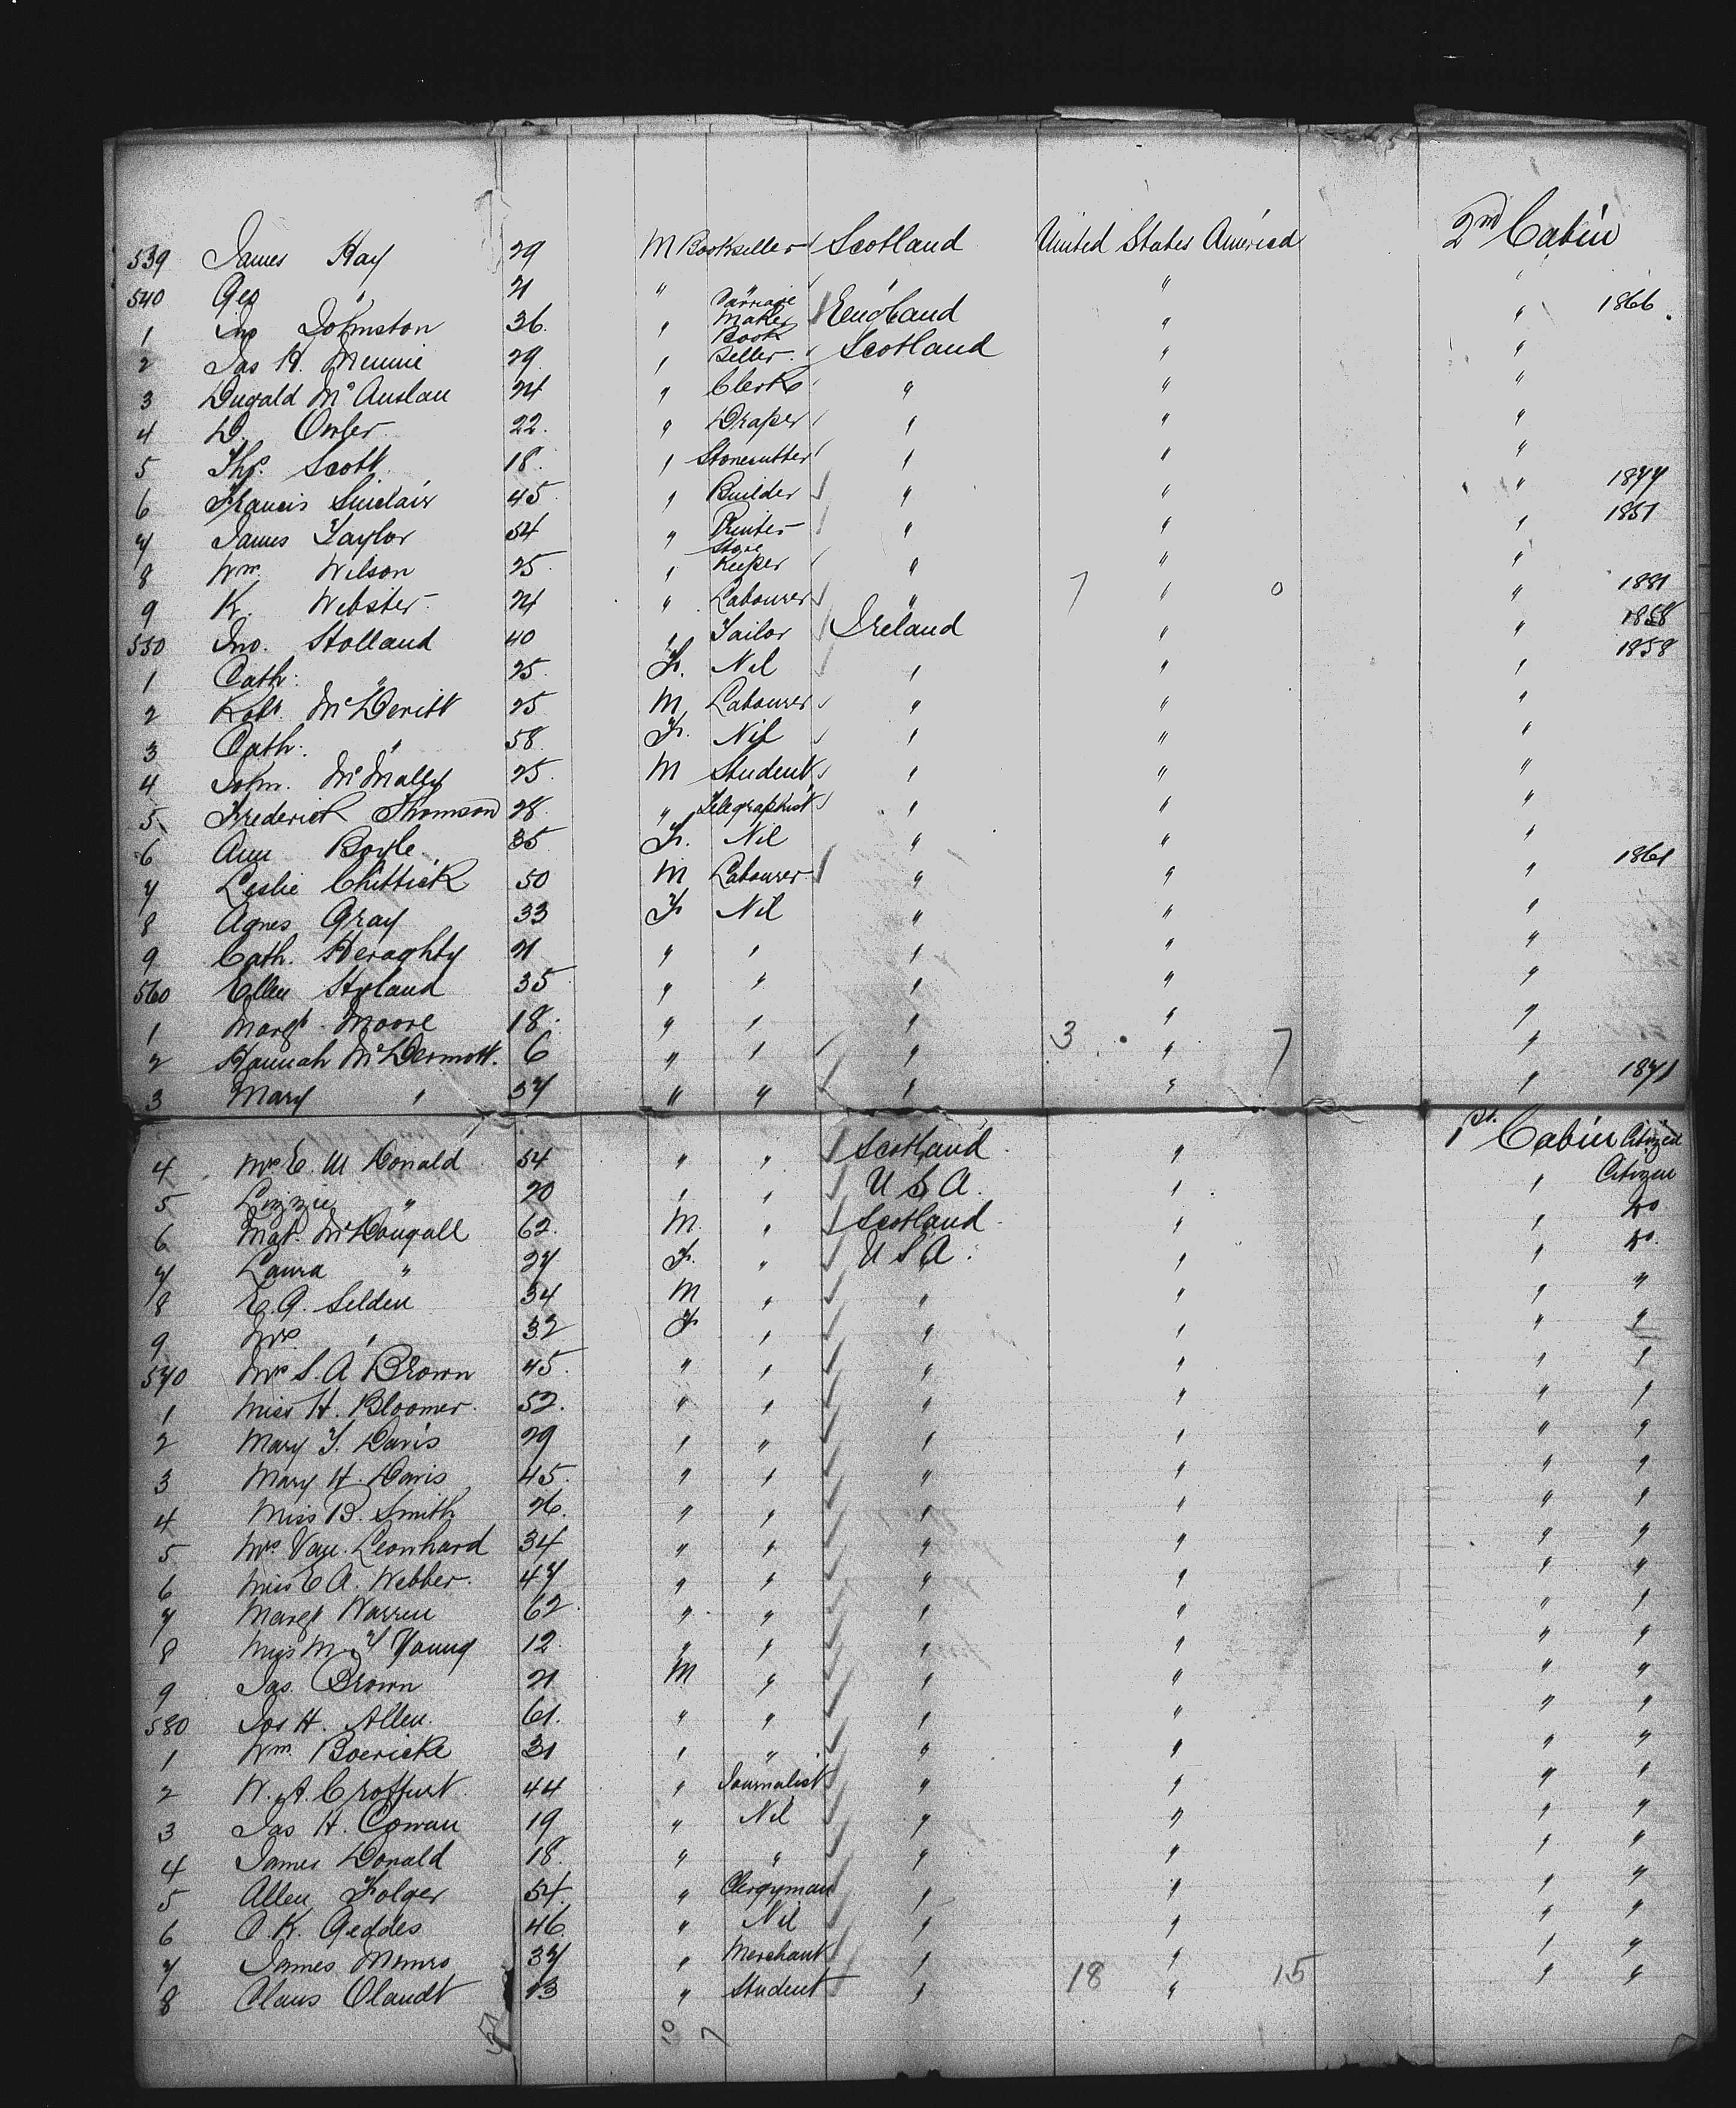 539 James Hay 29 M Bookseller Scotland United States America 2nd Cabin
540 Geo " 21 " " " " "
1 Jno Johnston 36 " Carriage Maker England " " 1866
2 Jas H. Mennie 29 " Book Seller Scotland " "
3 Dugald McAuslan 24 " Clerk " " "
4 D. Owler 22 " Draper " " "
5 Thos. Scott 18 " Stonecutter " " "
6 Francis Sinclair 45 " Builder " " " 1877
7 James Taylor 54 " Printer " " " 1851
8 Wm. Wilson 25 " Store Keeper " " "
9 K. Webster 24 " Labourer " 7 " 0 " 1881
550 Jno. Stolland 40 " Tailor Ireland " " 1858
1 Cath. " 25 F. Nil " " " 1858
2 Robt. McDevitt 25 M Labourer " " "
3 Cath. " 58 F. Nil " " "
4 John McNally 25 M Student " " "
5 Frederick Thomson 28 " Telegraphist " " "
6 Ann Boyle 35 F. Nil " " "
7 Leslie Chittick 50 M Labourer " " " 1861
8 Agnes Gray 33 F Nil " " "
9 Cath. Heraghty 21 " " " " "
560 Ellen Hyland 35 " " " " "
1 Margt. Moore 18 " " " " "
2 Hannah McDermott 6 " " " 3 " 7 "
3 Mary " 37 " " " " " 1871
4 Mrs E. M. Donald 54 " " Scotland " 1st. Cabin Citizen
5 Lizzie " 20 " " U S A. " " Citizen
6 Mat. McDougall 62. M. " Scotland " " Do
7 Laura " 27 F. " U S A. " " Do.
8 E. A. Selden 34 M " " " " "
9 Mrs. " 32 F " " " " "
570 Mrs S. A Brown 45 " " " " " "
1 Miss H. Bloomer 52. " " " " " "
2 Mary T. Davis 29 " " " " " "
3 Mary H. Davis 45. " " " " " "
4 Miss B. Smith 26. " " " " " "
5 Mrs Van. Leonhard 34 " " " " " "
6 Miss E A. Webber 47 " " " " " "
7 Margt Warren 62 " " " " " "
8 Miss M. Y Young 12 " " " " " "
9 Jas. Brown 21 M " " " " "
580 Jos H. Allen 61. " " " " " "
1 Wm. Boericke 31 " " " " " "
2 W. A. Croffurt 44 " Journalist " " " "
3 Jas H. Cowan 19 " Nil " " " "
4 James Donald 18 " " " " " "
5 Allen Folger 54. " Clergyman " " " "
6 A. K. Geddes 46 " Nil " " " "
7 James Munro 37 " Merchant " 18 " 15 " "
8 Claus Olandt 13 " Student " "
10 7